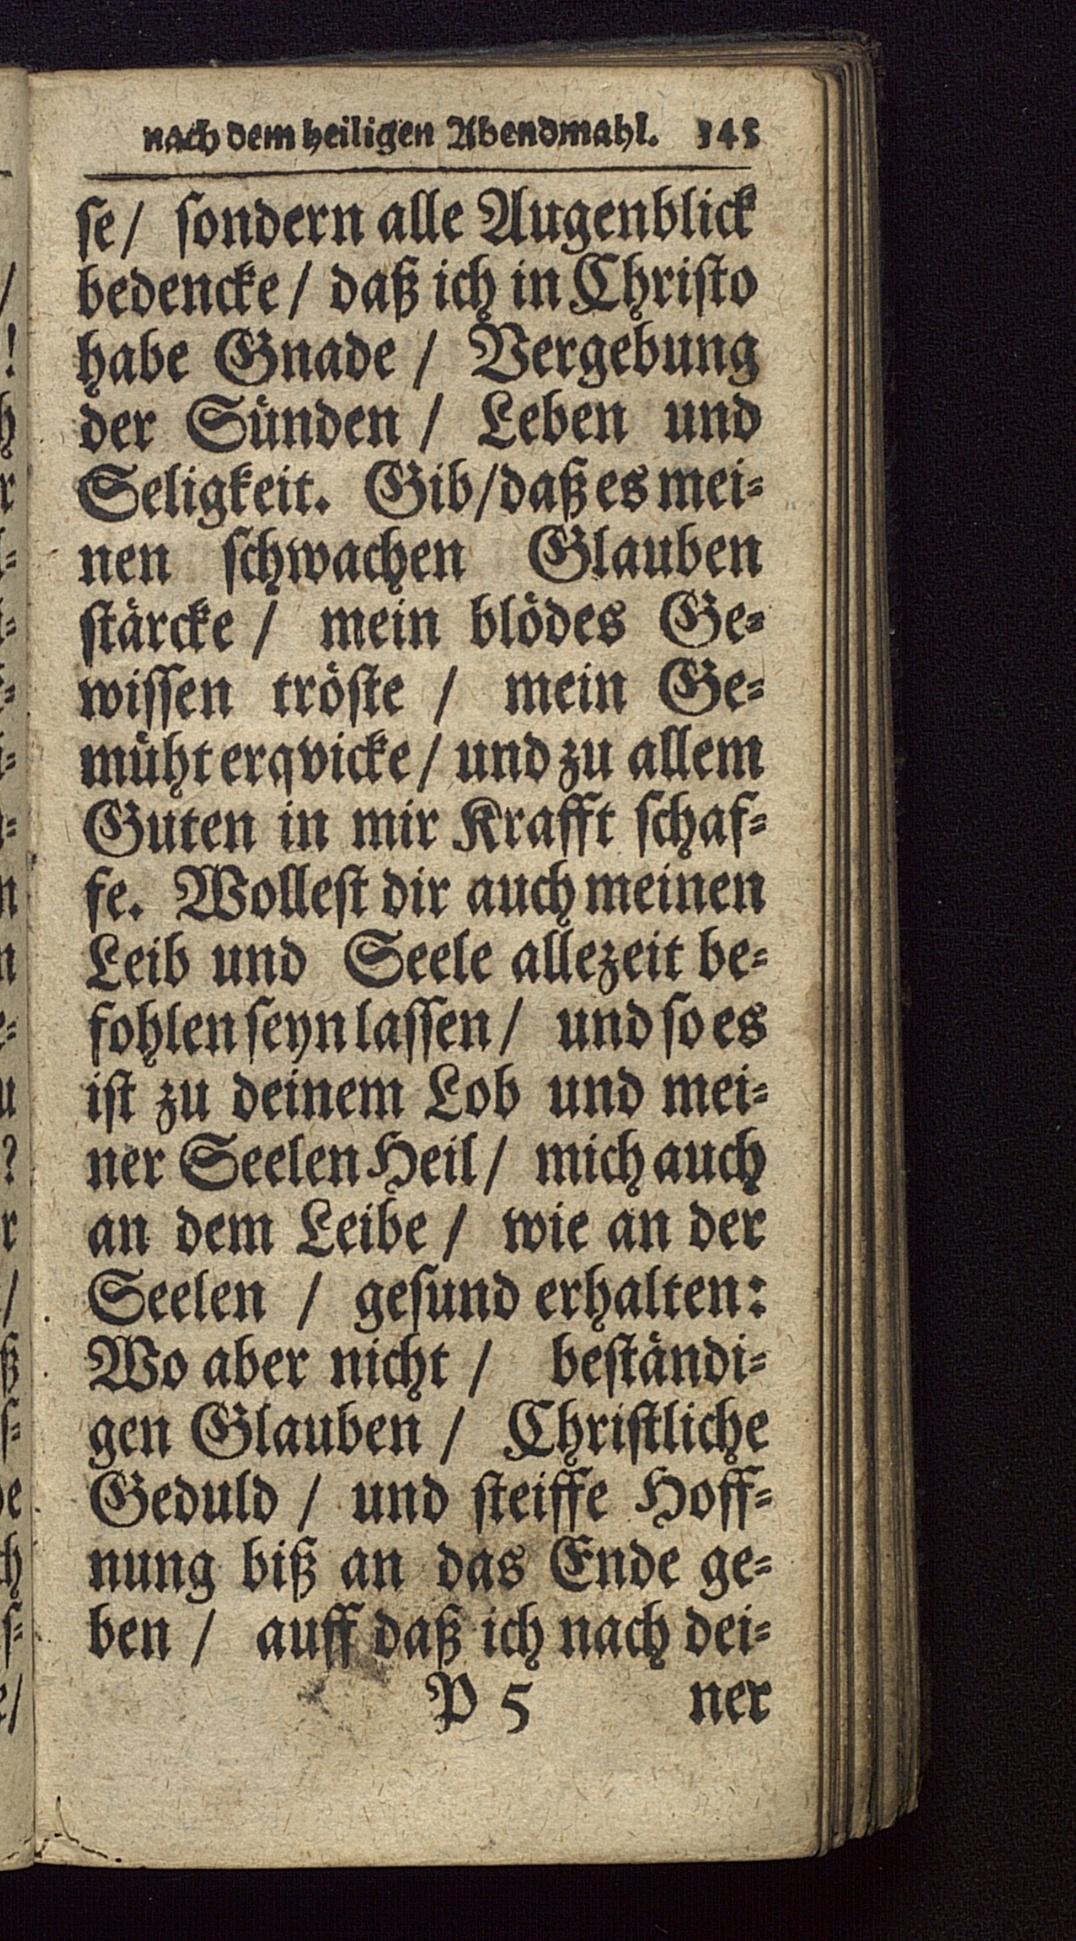 nach dem heiligen Abendmahl. 345
ſe/ ſondern alle Augenblick
bedencke / daß ich in Chriſto
habe Gnade / Vergebung
der Sünden / Leben und
Seligkeit. Gib/daß es mei⸗
nen ſchwachen Glauben
ſtärcke / mein blödes Ge⸗
wiſſen tröſte / mein Ge⸗
müht erqvicke / und zu allem
Guten in mir Krafft ſchaf⸗
fe. Wolleſt dir auch meinen
Leib und Seele allezeit be⸗
fohlen ſeyn laſſen / und ſo es
iſt zu deinem Lob und mei⸗
ner Seelen Heil / mich auch
an dem Leibe / wie an der
Seelen / geſund erhalten:
Wo aber nicht / beſtändi⸗
gen Glauben / Chriſtliche
Geduld / und ſteiffe Hoff⸗
nung biß an das Ende ge⸗
ben / auff daß ich nach dei⸗
P 5 ner